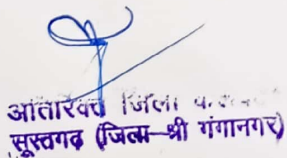 अतिरिक्त जिला
सूरतगढ़ (जिला-श्री गंगानगर)